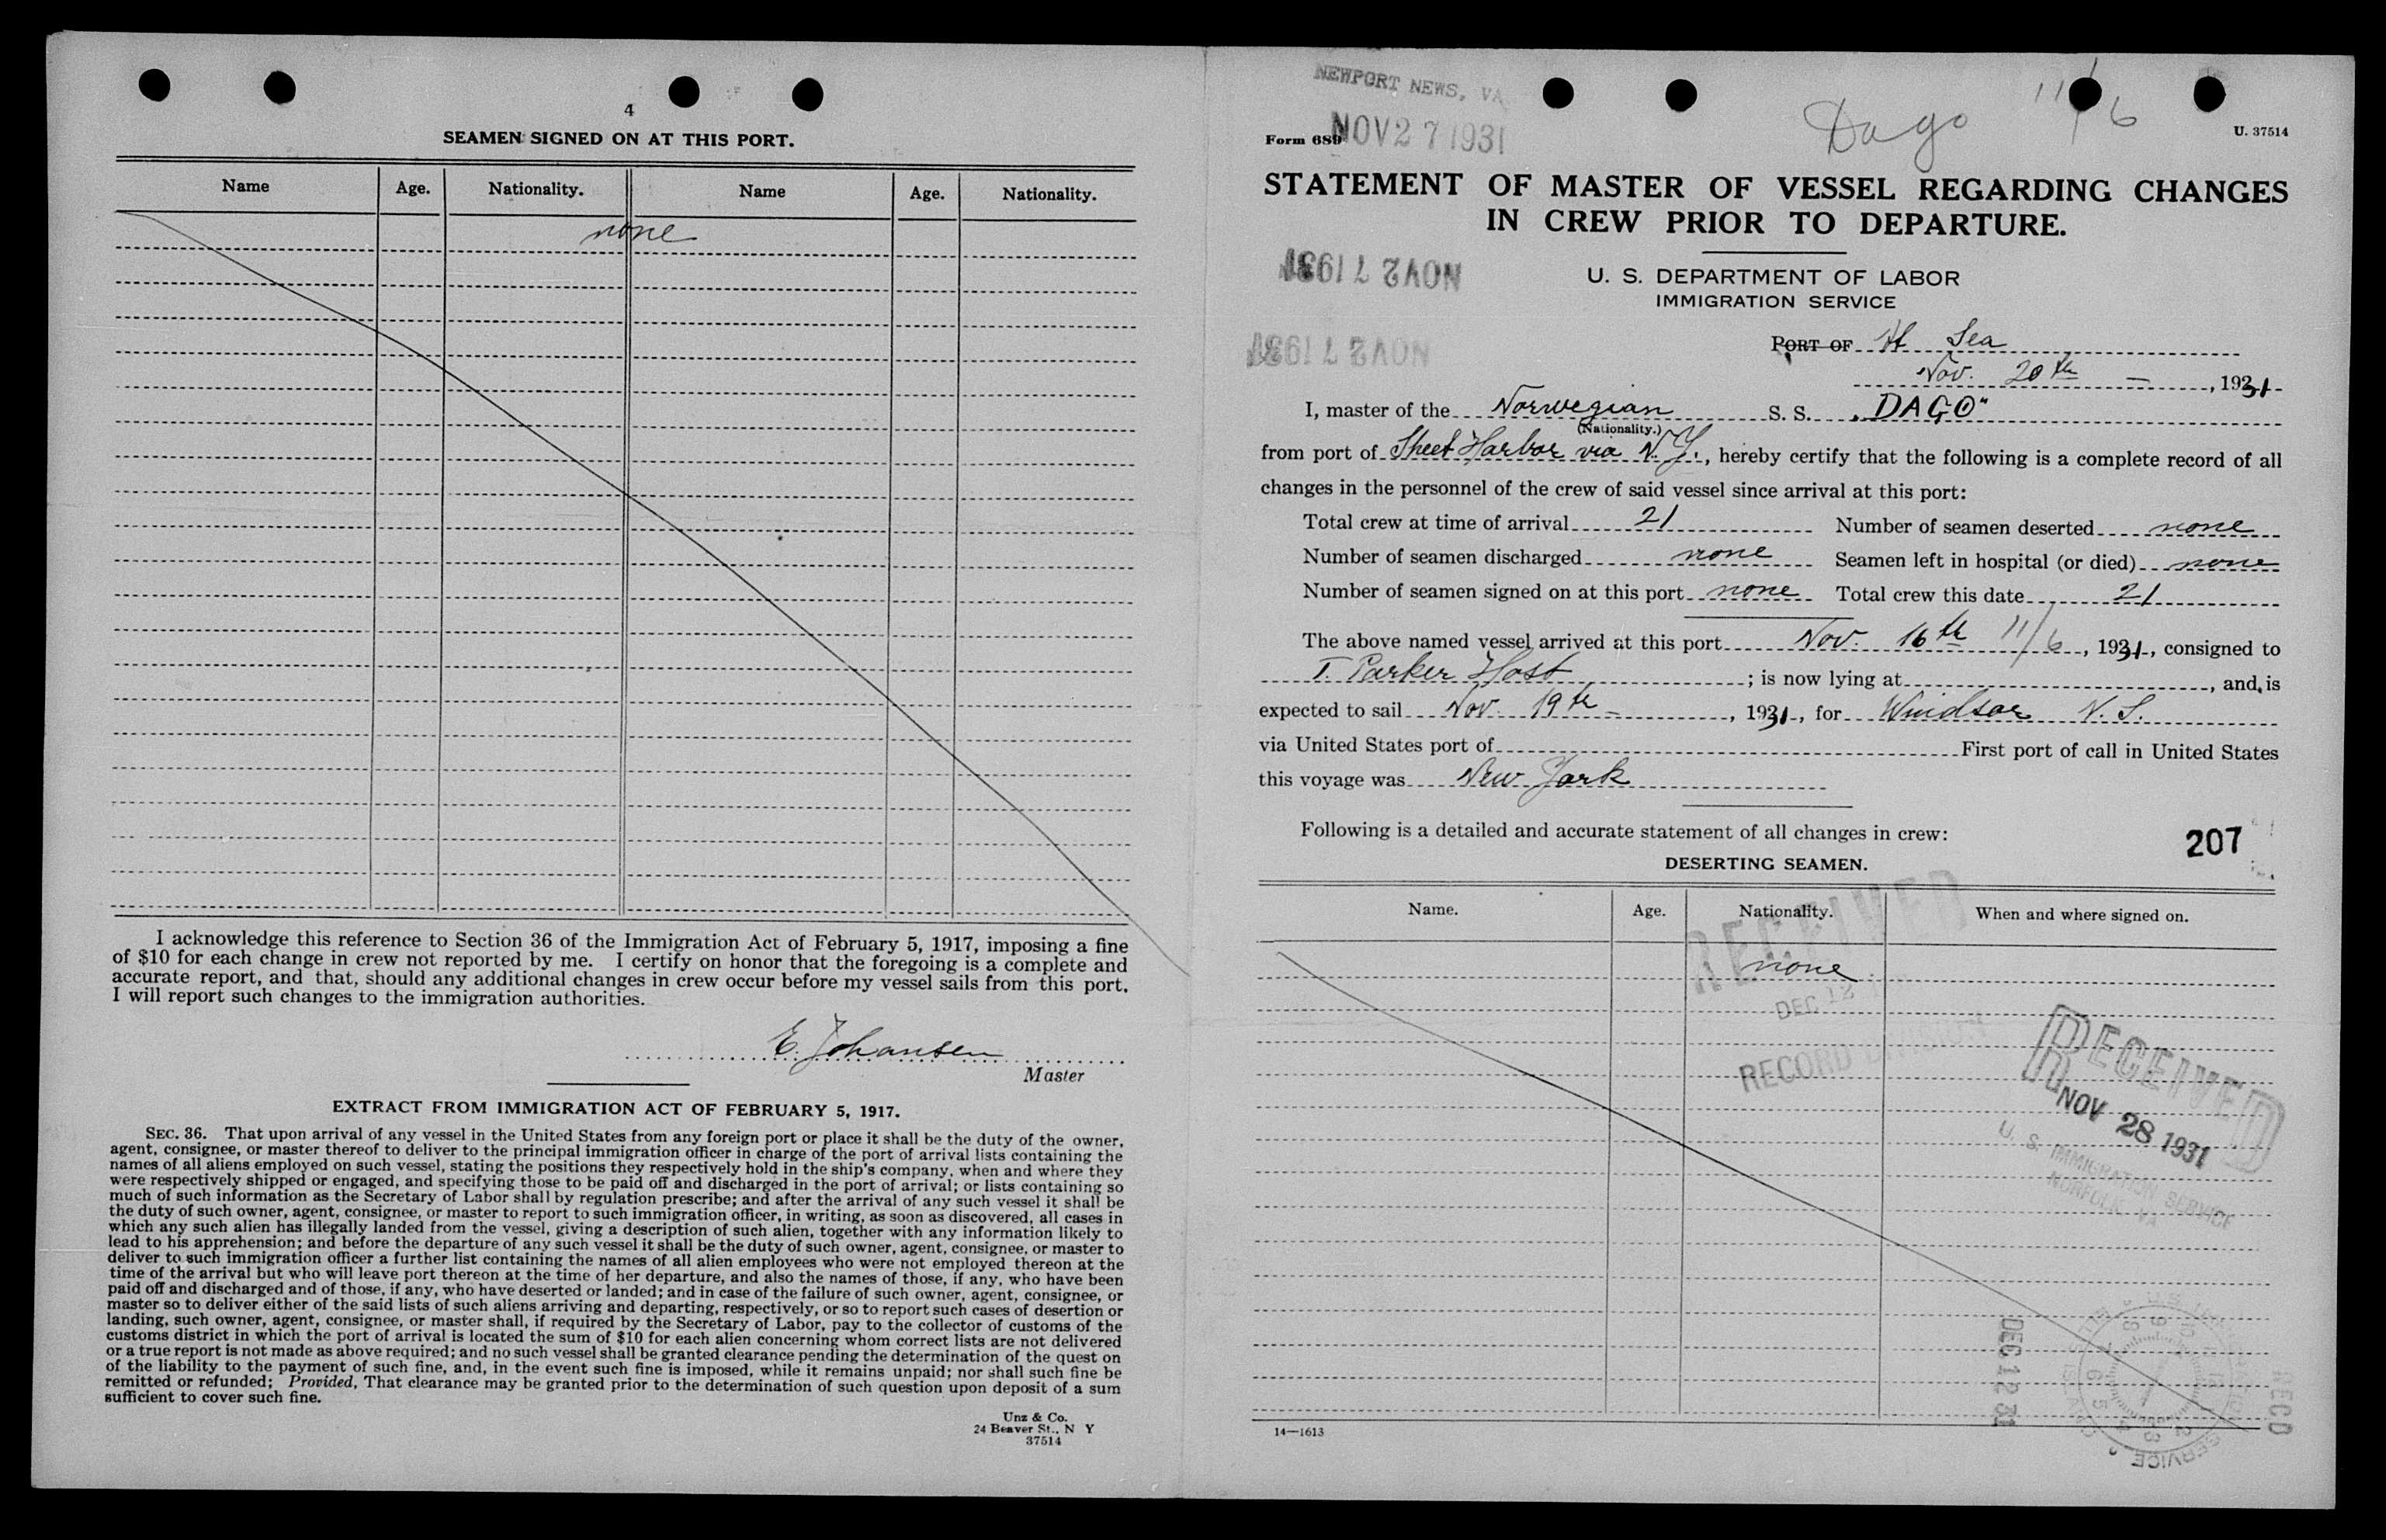 4
SEAMEN SIGNED ON AT THIS PORT.
Name Age. Nationality. Name Age. Nationality.
none
I acknowledge this reference to Section 36 of the Immigration Act of February 5, 1917, imposing a fine
of $10 for each change in crew not reported by me. I certify on honor that the foregoing is a complete and
accurate report, and that, should any additional changes in crew occur before my vessel sails from this port,
I will report such changes to the immigration authorities.
E. Johansen
Master
EXTRACT FROM IMMIGRATION ACT OF FEBRUARY 5, 1917.
SEC. 36. That upon arrival of any vessel in the United States from any foreign port or place it shall be the duty of the owner,
agent, consignee, or master thereof to deliver to the principal immigration officer in charge of the port of arrival lists containing the
names of all aliens employed on such vessel, stating the positions they respectively hold in the ship's company, when and where they
were respectively shipped or engaged, and specifying those to be paid off and discharged in the port of arrival; or lists containing so
much of such information as the Secretary of Labor shall by regulation prescribe; and after the arrival of any such vessel it shall be
the duty of such owner, agent, consignee, or master to report to such immigration officer, in writing, as soon as discovered, all cases in
which any such alien has illegally landed from the vessel, giving a description of such alien, together with any information likely to
lead to his apprehension; and before the departure of any such vessel it shall be the duty of such owner, agent, consignee, or master to
deliver to such immigration officer a further list containing the names of all alien employees who were not employed thereon at the
time of the arrival but who will leave port thereon at the time of her departure, and also the names of those, if any, who have been
paid off and discharged and of those, if any, who have deserted or landed; and in case of the failure of such owner, agent, consignee, or
master so to deliver either of the said lists of such aliens arriving and departing, respectively, or so to report such cases of desertion or
landing, such owner, agent, consignee, or master shall, if required by the Secretary of Labor, pay to the collector of customs of the
customs district in which the port of arrival is located the sum of $10 for each alien concerning whom correct lists are not delivered
or a true report is not made as above required; and no such vessel shall be granted clearance pending the determination of the quest on
of the liability to the payment of such fine, and, in the event such fine is imposed, while it remains unpaid; nor shall such fine be
remitted or refunded; Provided, That clearance may be granted prior to the determination of such question upon deposit of a sum
sufficient to cover such fine.
Unz & Co.
24 Beaver St., N Y
37514
NEWPORT NEWS, VA
NOV 27 1931
Form 689
Dago 11/6
U. 37514
STATEMENT OF MASTER OF VESSEL REGARDING CHANGES
IN CREW PRIOR TO DEPARTURE.
NOV 27 1931
U. S. DEPARTMENT OF LABOR
IMMIGRATION SERVICE
NOV 27 1931
PORT OF At Sea
Nov. 20th - , 1931
I, master of the Norwegian S. S. "DAGO"
(Nationality.)
from port of Sheet Harbor via N.Y., hereby certify that the following is a complete record of all
changes in the personnel of the crew of said vessel since arrival at this port:
Total crew at time of arrival 21 Number of seamen deserted none
Number of seamen discharged none Seamen left in hospital (or died) none
Number of seamen signed on at this port none Total crew this date 21
The above named vessel arrived at this port Nov. 16th 11/6, 1931, consigned to
T. Parker Host; is now lying at , and is
expected to sail Nov. 19th - , 1931, for Windsor N. S.
via United States port of First port of call in United States
this voyage was New York
Following is a detailed and accurate statement of all changes in crew:
207
DESERTING SEAMEN.
Name. Age. Nationality. When and where signed on.
none
RECEIVED
DEC 12
RECORD DIVISION
RECEIVED
NOV 28 1931
U. S. IMMIGRATION SERVICE
NORFOLK, VA
DEC 12 31
RECD
SERVICE
14—1613